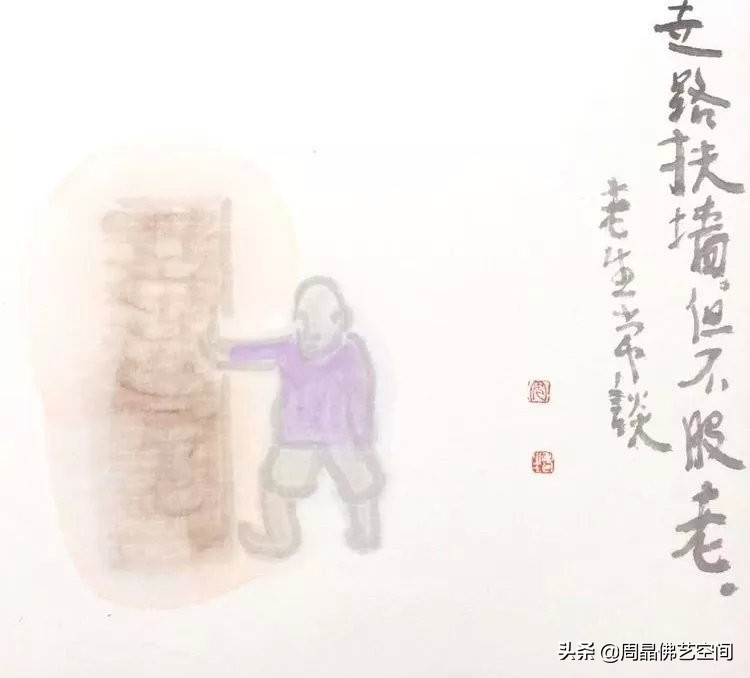 走路扶墙。但不服老。
老生常談
头条 @周晶佛艺空间